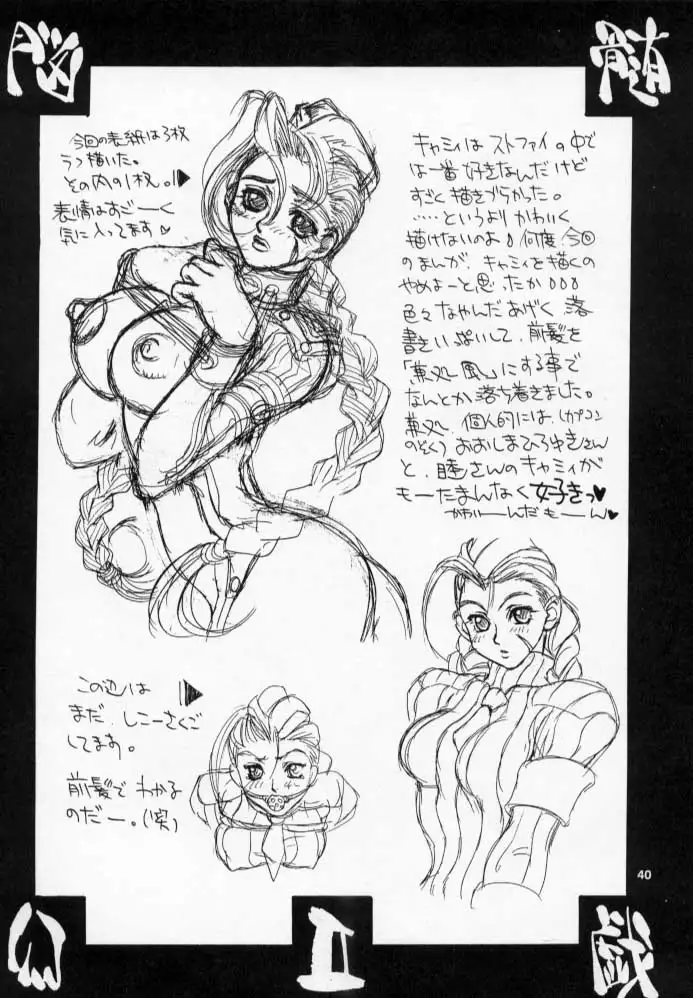 脳
髄
今回の表紙は3枚
うつ描いた。
その内の1枚。
表情はすごーーく
気に入ってます♥
キャミィは ストファイの中で
は一番好きなんだけど
すごく描きづらかった。
……というよりかわいく
描けないのよ 何度 今回
のまんが、キャミィを描くの
やめよーと思たか
色々なやんだあげく 落
書きいっぱいして、前髪を
風」にする事で
なんとか落ち着きました。
個人的には、(カプコン
のぞく) おおしまひろゆきさん
と、睦さんのキャミィが
もーたまんなく好きっ♥
かわいーんだもーん♥
この辺は
まだ、しこーさくご
してます。
前髪で わかる
のだー。(笑)
40
II
戯